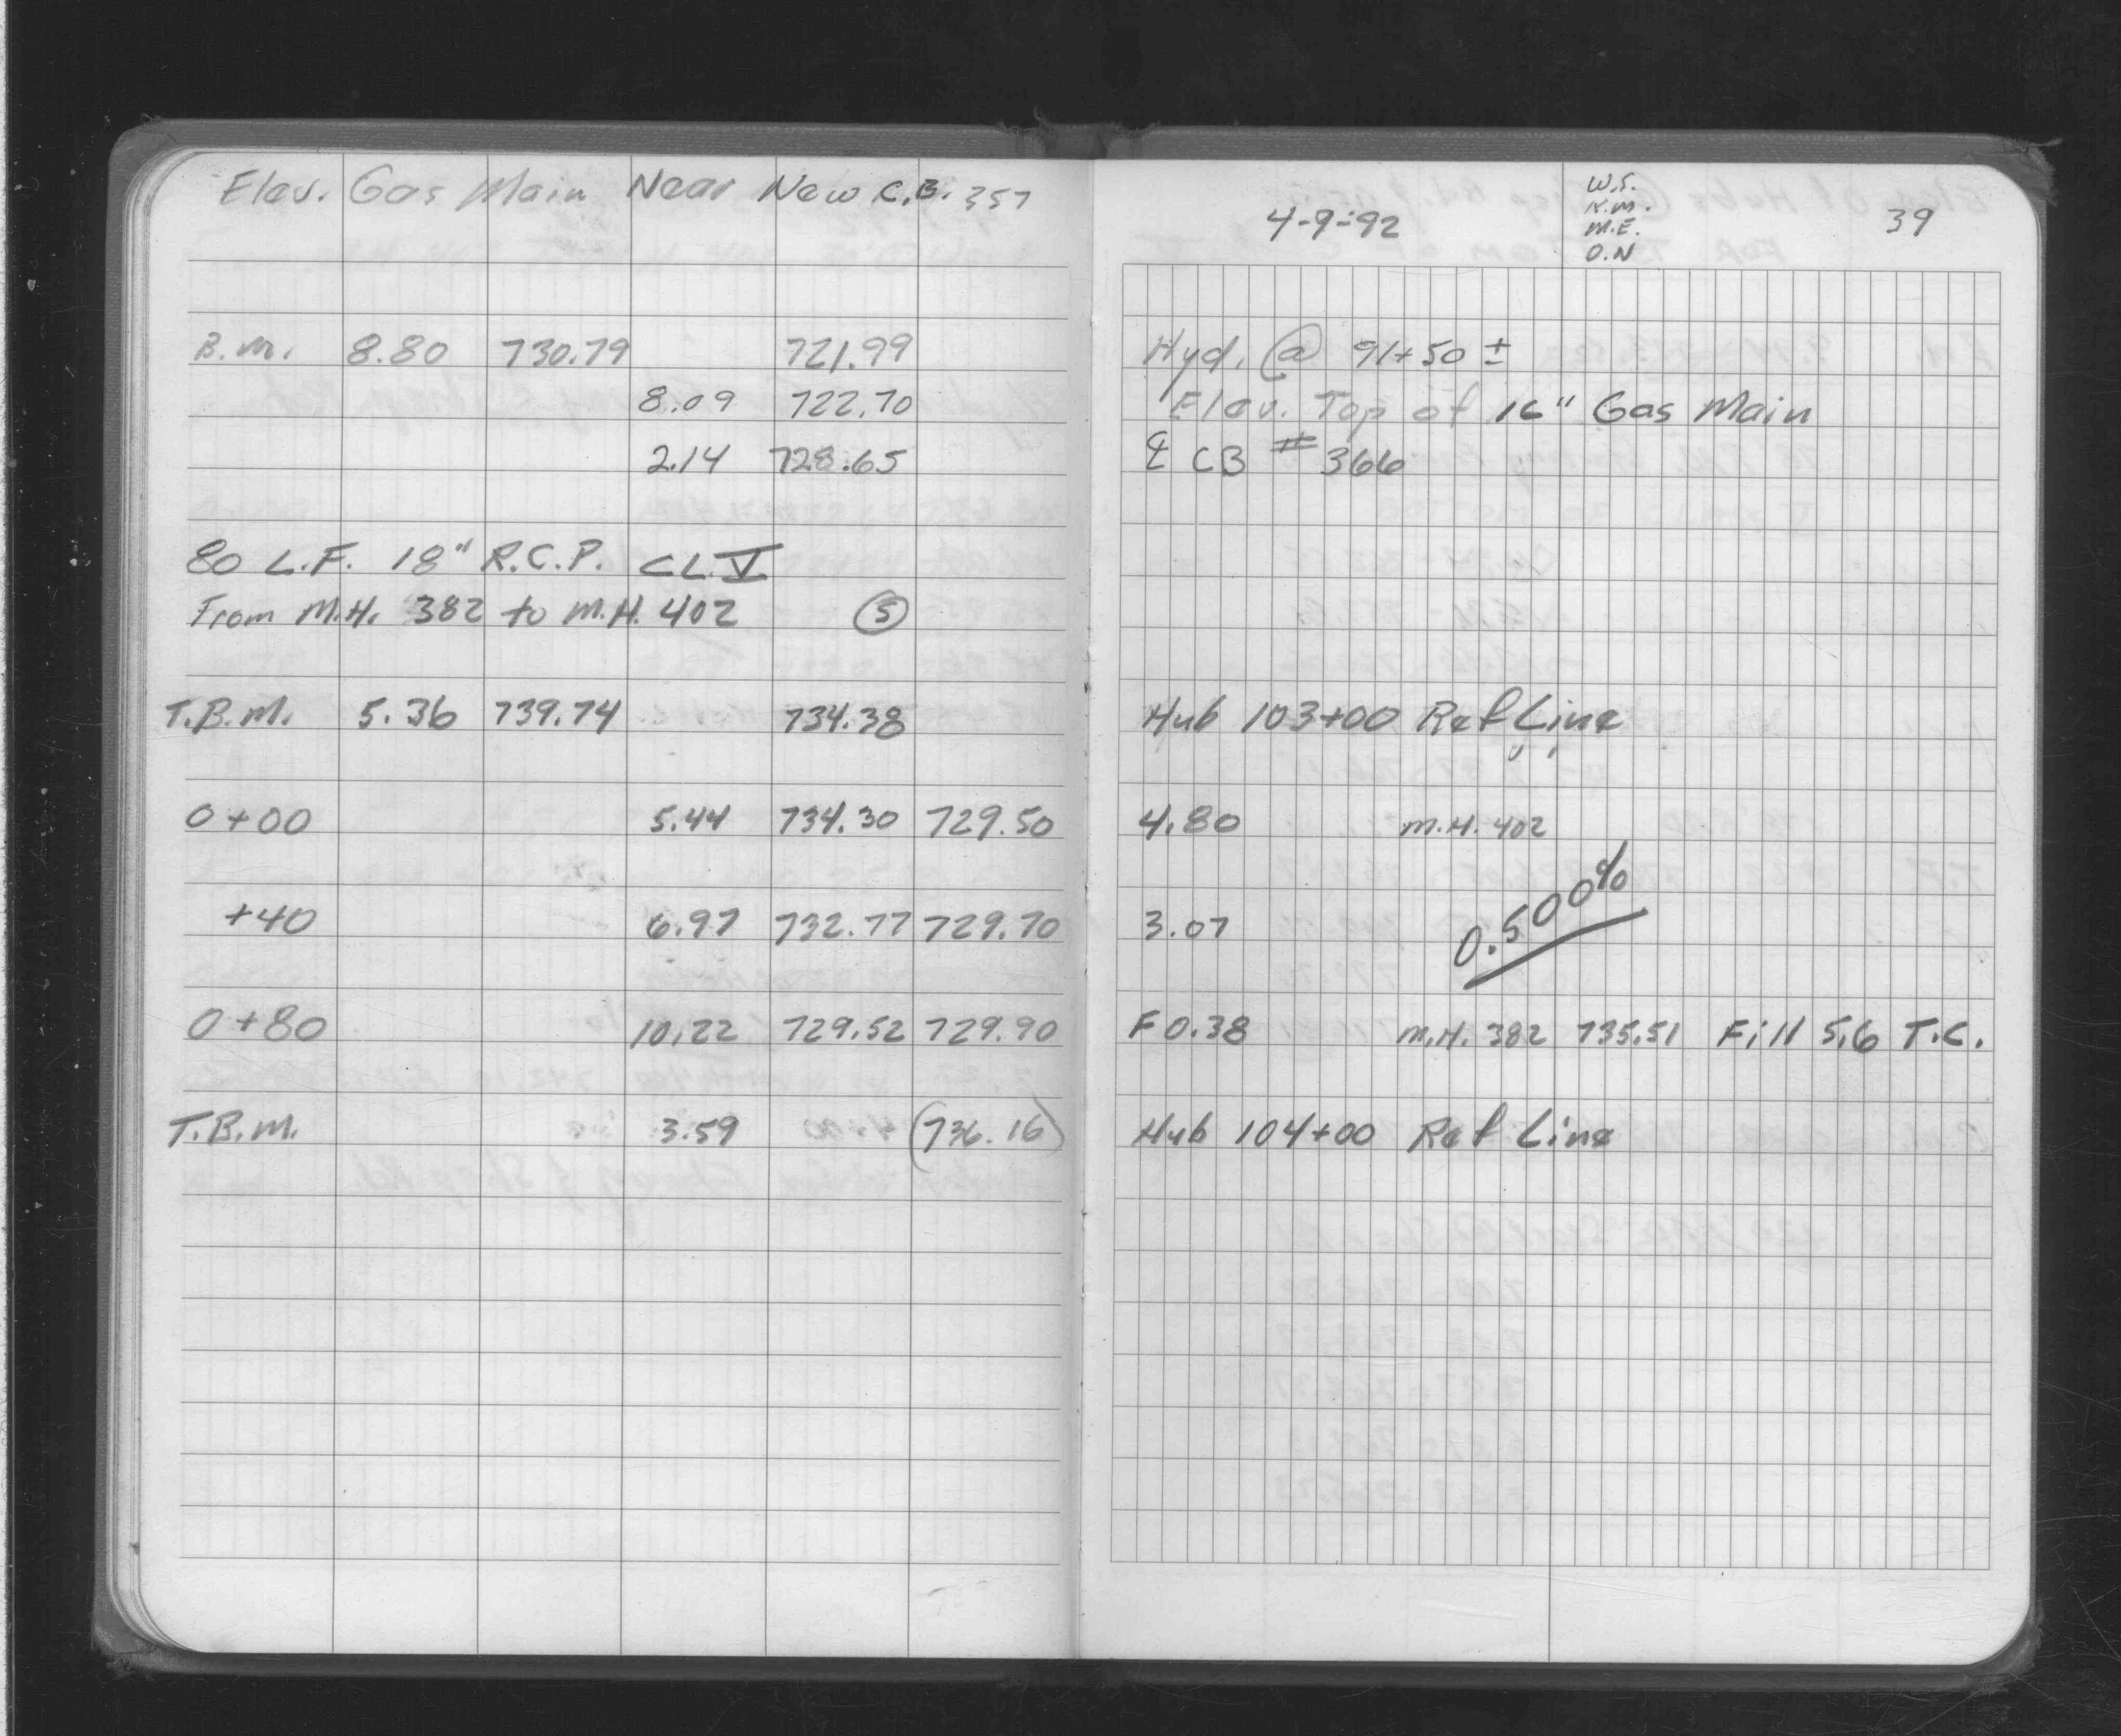 Elev. Gas Main Near New C.B. 357
B.M. 8.80 730.79 721.99
8.09 722.70
2.14 728.65
80 L.F. 18" R.C.P. CL. V
From M.H. 382 to M.H. 402 5
T.B.M. 5.36 739.74 734.38
0+00 5.44 734.30 729.50
+40 6.97 732.77 729.70
0+80 10.22 729.52 729.90
T.B.M. 3.59 (736.16)
4-9-92
W.S.
K.M.
M.E.
O.N
39
Hyd. @ 91+50 ±
Elev. Top of 16" Gas Main
℄ CB # 366
Hub 103+00 Ref Line
4.80 M.H. 402
3.07 0.500%
F 0.38 M.H. 382 735.51 Fill 5.6 T.C.
Hub 104+00 Ref Line